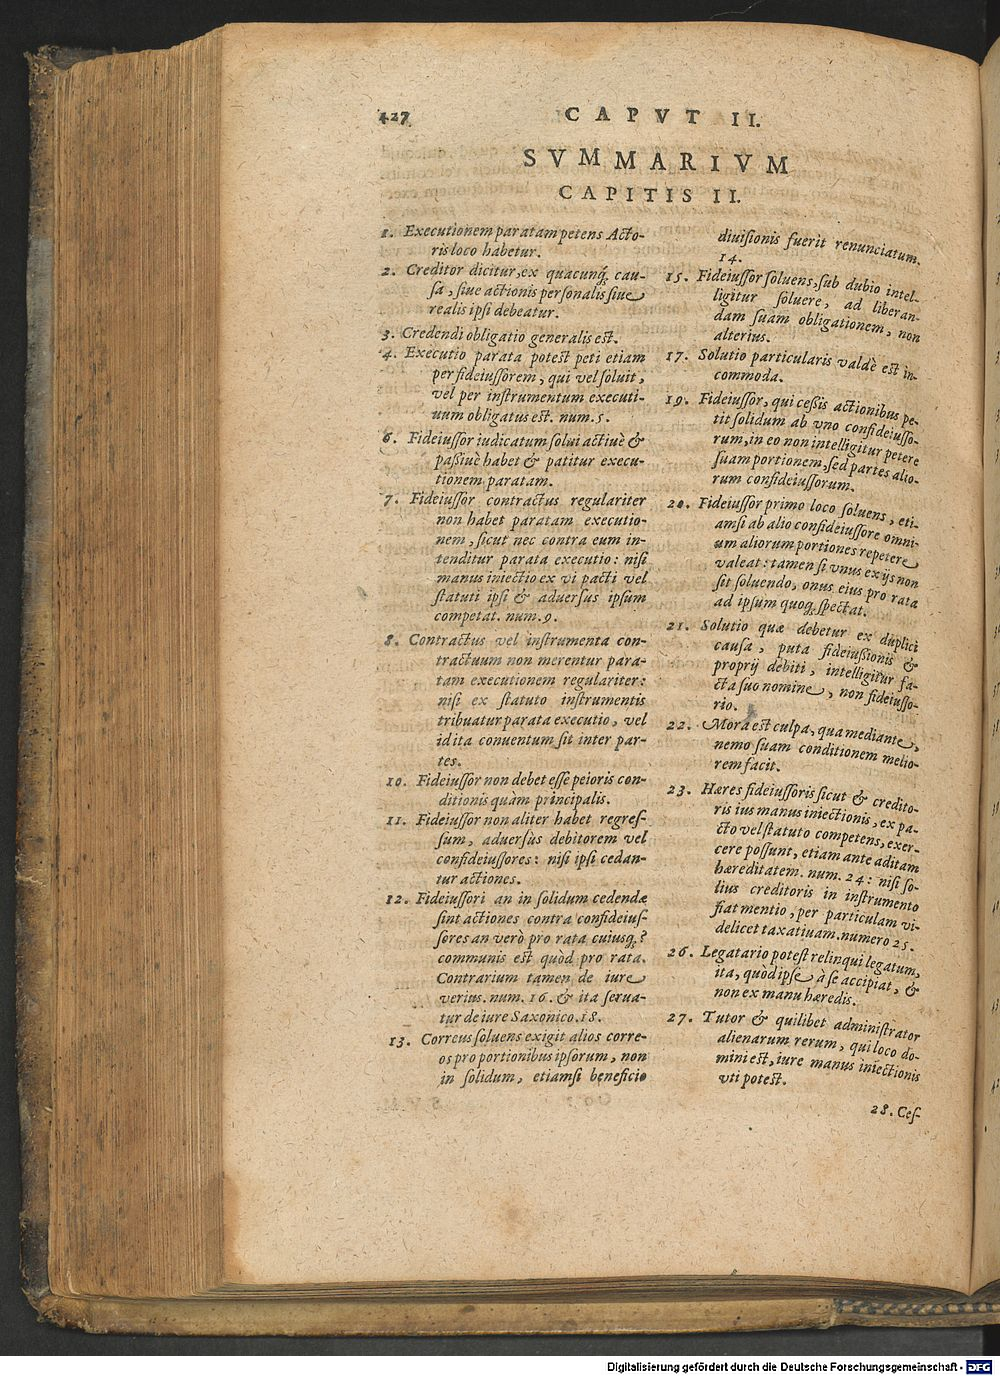 427
CAPVT II.
SVMMARIVM
CAPITIS II.
1. Executionem paratam petens Acto-
ris loco habetur.
2. Creditor dicitur, ex quacunq́; cau-
sa, siue actionis personalis siue
realis ipsi debeatur.
3. Credendi obligatio generalis est.
4. Executio parata potest peti etiam
per fideiussorem, qui vel soluit,
vel per instrumentum executi-
uum obligatus est. num. 5.
6. Fideiussor iudicatum solui actiuè &
passiuè habet & patitur execu-
tionem paratam.
7. Fideiussor contractus regulariter
non habet paratam executio-
nem, sicut nec contra eum in-
tenditur parata executio: nisi
manus iniectio ex vi pacti vel
statuti ipsi & aduersus ipsum
competat. num. 9.
8. Contractus vel instrumenta con-
tractuum non merentur para-
tam executionem regulariter:
nisi ex statuto instrumentis
tribuatur parata executio, vel
id ita conuentum sit inter par-
tes.
10. Fideiussor non debet esse peioris con-
ditionis quàm principalis.
11. Fideiussor non aliter habet regres-
sum, aduersus debitorem vel
confideiussores: nisi ipsi cedan-
tur actiones.
12. Fideiussori an in solidum cedendæ
sint actiones contra confideius-
sores an verò pro rata cuiusq;?
communis est quòd pro rata.
Contrarium tamen de iure
verius. num. 16. & ita serua-
tur de iure Saxonico. 18.
13. Correus soluens exigit alios corre-
os pro portionibus ipsorum, non
in solidum, etiamsi beneficio
diuisionis fuerit renunciatum.
14.
15. Fideiussor soluens, sub dubio intel-
ligitur soluere, ad liberan-
dam suam obligationem, non
alterius.
17. Solutio particularis valdè est in-
commoda.
19. Fideiussor, qui cessis actionibus pe-
tit solidum ab vno confideiusso-
rum, in eo non intelligitur petere
suam portionem, sed partes alio-
rum confideiussorum.
20. Fideiussor primo loco soluens, eti-
amsi ab alio confideiussore omni-
um aliorum portiones repetere
valeat: tamen si vnus ex ijs non
sit soluendo, onus eius pro rata
ad ipsum quoq; spectat.
21. Solutio quæ debetur ex duplici
causa, puta fideiussionis &
proprij debiti, intelligitur fa-
cta suo nomine, non fideiusso-
rio.
22. Mora est culpa, qua mediante,
nemo suam conditionem melio-
rem facit.
23. Hæres fideiussoris sicut & credito-
ris ius manus iniectionis, ex pa-
cto vel statuto competens, exer-
cere possunt, etiam ante aditam
hæreditatem. num. 24: nisi so-
lius creditoris in instrumento
fiat mentio, per particulam vi-
delicet taxatiuam. numero 25.
26. Legatario potest relinqui legatum,
ita, quòd ipse à se accipiat, &
non ex manu hæredis.
27. Tutor & quilibet administrator
alienarum rerum, qui loco do-
mini est, iure manus iniectionis
vti potest.
28. Ces-
Digitalisierung gefördert durch die Deutsche Forschungsgemeinschaft - DFG